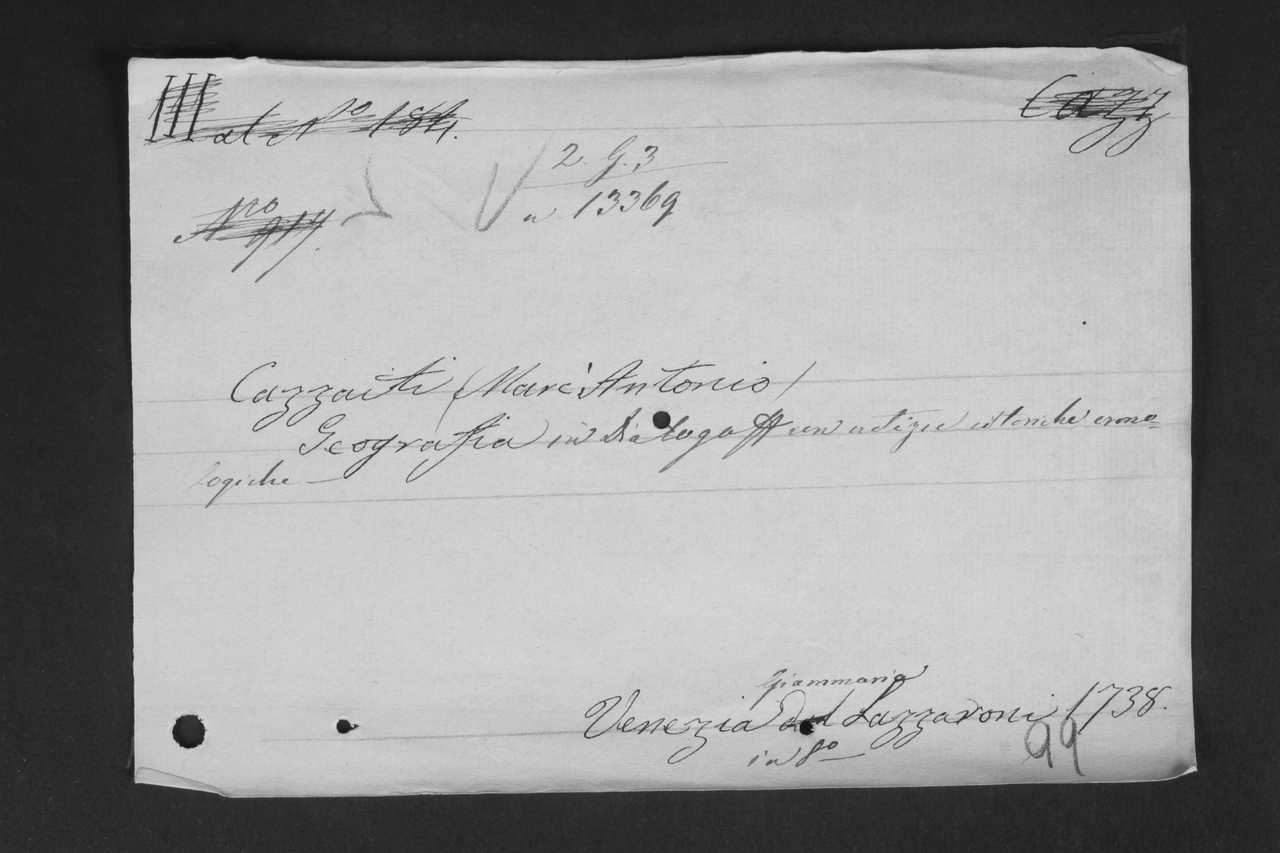 III al Nº 184. Cazz
2. G. 3
Nro 917. a 13369
Cazzaiti (Marc'Antonio)
Geografia in Dialogo con notizie istoriche crono=
logiche —
Giammaria
Venezia dal Lazzaroni 1738.
in 8º
99